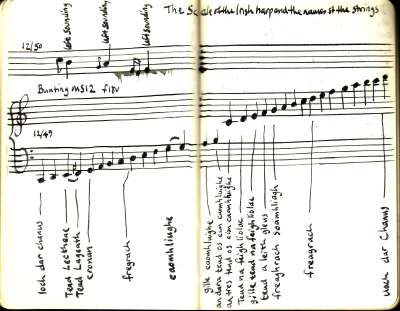 The Scale of the Irish harp and the names of the strings
12/50
left sounding
left sounding
left sounding
Bunting MS12 f18v
12/49
loch dar chanus
Tead Leethene
Tead Laganh
cronan
fregrach
caomhluighe
gille caomhluighe
an dara tead os cion caomhluighe
an tres tead os cion caomhluighe
Tead na feighliolac
gille tead na feighliolac
tead a leith gleus
freaghrach Soamhliagh
freagrach
uach dar Chanus